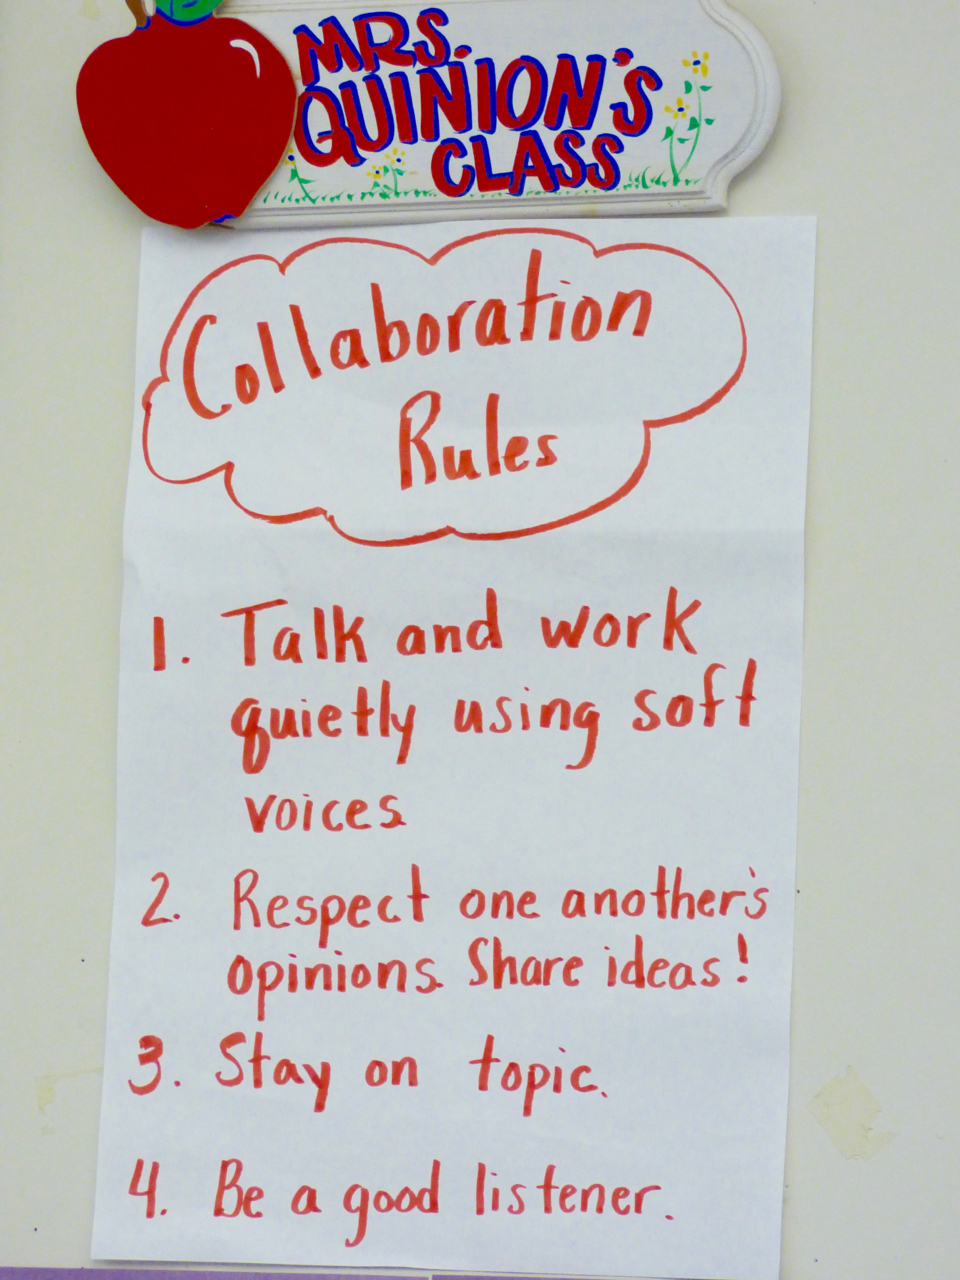 MRS.
QUINION'S
CLASS
Collaboration
Rules
1. Talk and work
quietly using soft
voices.
2. Respect one another's
opinions. Share ideas!
3. Stay on topic.
4. Be a good listener.